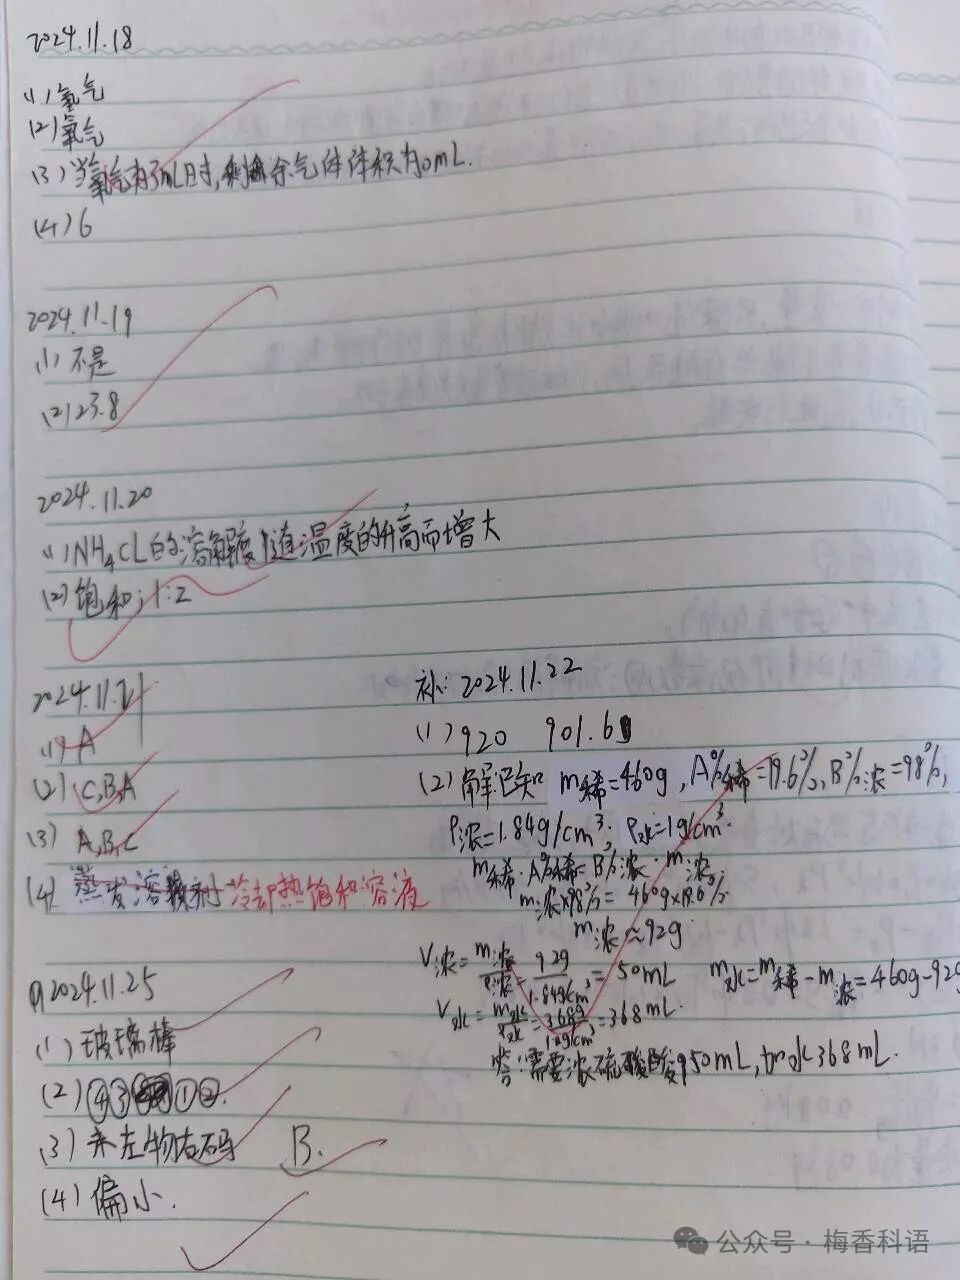 2024.11.18
(1)氢气
(2)氧气
(3)当氧气为3mL时,剩余气体体积为0mL.
(4)6
2024.11.19
(1)不是
(2)23.8
2024.11.20
(1)NH₄CL的溶解度随温度的升高而增大
(2)饱和;1:2
2024.11.21
(1)A
(2)C,B,A
(3)A,B,C
(4)蒸发溶剂 冷却热饱和溶液
补:2024.11.22
(1)920 901.6g
(2)解:已知 m稀=460g,A%稀=19.6%,B%浓=98%,
ρ浓=1.84g/cm³,ρ水=1g/cm³.
m稀·A%稀=B%浓·m浓.
m浓×98%=460g×19.6%
m浓≈92g
V浓=m浓/ρ浓=92g/1.84g/cm³=50mL m水=m稀-m浓=460g-92g
V水=m水/ρ水=368g/1.0g/cm³=368mL.
答:需要浓硫酸50mL,加水368mL.
2024.11.25
(1)玻璃棒
(2)④③①②.
(3)左物右码 B.
(4)偏小.
公众号·梅香科语